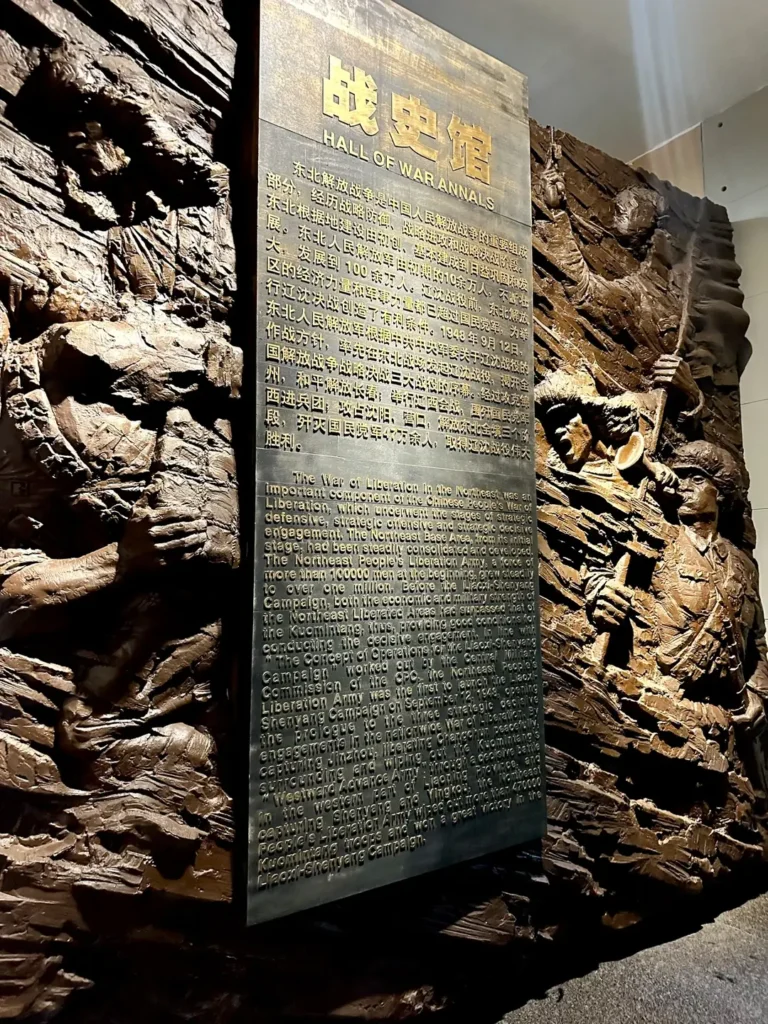 战史馆
HALL OF WAR ANNALS
东北解放战争是中国人民解放战争的重要组成
部分，经历战略防御、战略进攻和战略决战阶段。
东北根据地建设由初创、基本建成到日益巩固和发
展，东北人民解放军由初期的10余万人，不断壮
大，发展到 100 余万人。辽沈战役前，东北解放
区的经济力量和军事力量都已超过国民党军，为举
行辽沈决战创造了有利条件。1948 年 9 月 12 日，
东北人民解放军根据中共中央军委关于辽沈战役的
作战方针，率先在东北战场发起辽沈战役，揭开全
国解放战争战略决战三大战役的序幕。经过攻克锦
州，和平解放长春；举行辽西会战，围歼国民党军
西进兵团；攻占沈阳、营口，解放东北全境三个阶
段，歼灭国民党军47万余人，取得辽沈战役伟大
胜利。
The War of Liberation in the Northeast was an
important component of the Chinese People's War of
Liberation, which underwent the stages of strategic
defensive, strategic offensive and strategic decisive
engagement. The Northeast Base Area, from its initial
stage, had been steadily consolidated and developed.
The Northeast People's Liberation Army, a force of
more than 100000 men at the beginning, grew steadily
to over one million. Before the Liaoxi-Shenyang
Campaign, both the economic and military strength of
the Northeast Liberated Areas had surpassed that of
the Kuomintang, thus providing good conditions for
conducting the decisive engagement. In line with
"The Concept of Operations for the Liaoxi-Shenyang
Campaign" worked out by the Central Military
Commission of the CPC, the Northeast People's
Liberation Army was the first to launch the Liaoxi-
Shenyang Campaign on September 12, 1948, opening
the prologue to the three strategic decisive
engagements in the nationwide War of Liberation. By
capturing Jinzhou, liberating Changchun peacefully,
surrounding and wiping out the Kuomintang's
"Westward Advance Army" in a decisive battle
in the western part of Liaoning Province, and
capturing Shenyang and Yingkou, the Northeast
People's Liberation Army wiped out more than 470000
Kuomintang troops and won a great victory in the
Liaoxi-Shenyang Campaign.